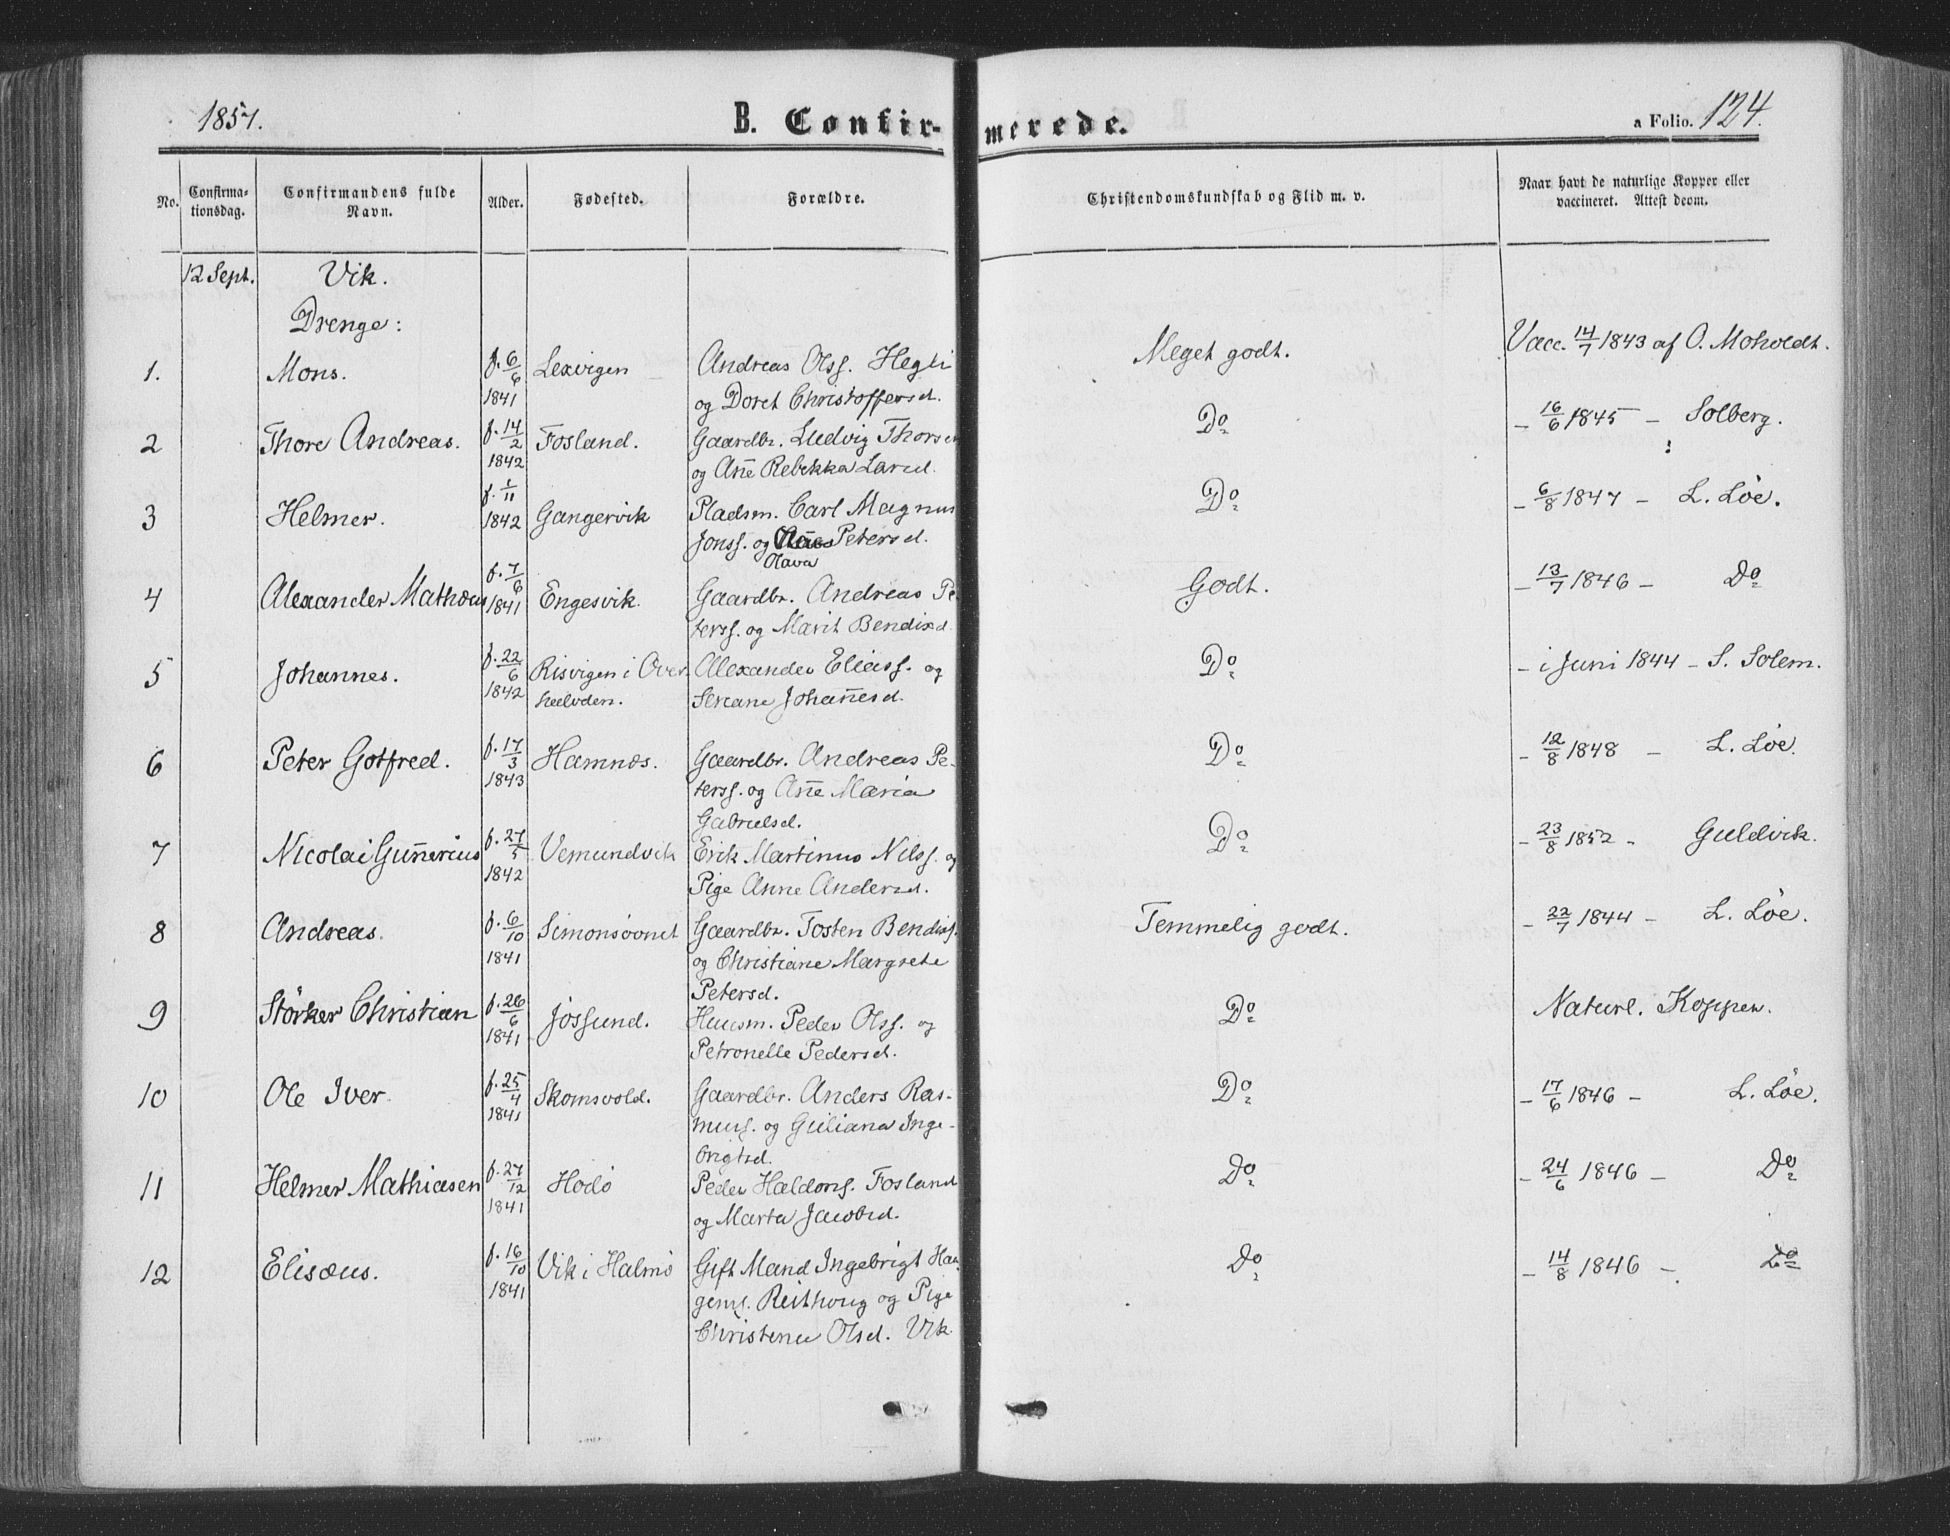 1857.
B. Confirmerede.
a Folio. 124.
No. Confirmationsdag. Confirmandens fulde Navn. Alder. Fødested. Forældre. Christendomskundskab og Flid m. v. Naar havt de naturlige Kopper eller vaccineret. Attest deom.
12 Sept. Vik.
Drenge:
1. Mons. f. 6/6 1841 Lexvigen Andreas Olss. Hegli og Doret Christoffersd. Meget godt. Vacc. 14/7 1843 af O. Moholdt.
2 Thore Andreas. f. 14/2 1842 Fosland. Gaardbr. Ludvig Thorsen og Ane Rebekka Larsd. Do - 16/6 1845 - Solberg.
3 Helmer. f. 1/11 1842 Gangervik Pladsm. Carl Magnus Jonss. og Olava Petersd. Do - 6/8 1847 - L. Löe.
4 Alexander Mathæus f. 7/6 1841 Engesvik. Gaardbr. Andreas Peterss. og Marit Bendixd. Godt. - 13/7 1846 - Do
5 Johannes. f. 22/6 1842 Risvigen i Overhalvden. Alexander Eliass. og Sereane Johanesd. Do - i Juni 1844 - S. Solem.
6 Peter Gotfred. f. 17/3 1843 Hamnæs. Gaardbr. Andreas Peterss. og Ane Maria Gabrielsd. Do - 12/8 1848 - L. Löe.
7 Nicolai Gunerius f. 27/5 1842 Vemundvik Erik Martinus Nilss. og Pige Anne Andersd. Do - 23/8 1852 - Guldvik.
8 Andreas. f. 6/10 1841 Simonsövnet Gaardbr. Tosten Bendixs. og Christiane Margrete Petersd. Temmelig godt. - 22/7 1844 - L. Löe.
9 Störker Christian f. 26/6 1841 Jössund. Huusm. Peder Olss. og Petronelle Pedersd. Do Naturl. Kopper.
10 Ole Iver. f. 25/4 1841 Skomsvold. Gaardbr. Anders Rasmuss. og Guliana Ingebrigtsd. Do - 17/6 1846 - L. Löe.
11 Helmer Mathiasen f. 27/12 1841 Hodö Peder Haldors. Fosland og Marta Jacobsd. Do - 24/6 1846 - Do
12 Elisæus. f. 16/10 1841 Vik i Halmö Gift Mand Ingebrigt Haagens. Reithoug og Pige Christence Olsd. Vik Do - 14/8 1846 - Do